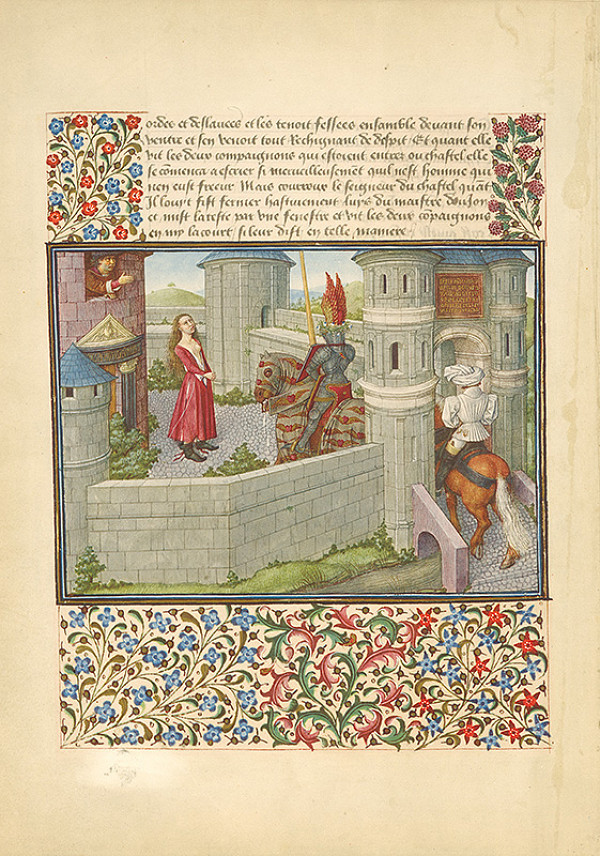 ordes et deslavees et les tenoit fessees ensamble devant son
ventre et sen venoit tout Rechignant de despit / Et quant elle
vit les deux compaignons qui estoient entrez ou chastel elle
se comenca a escrier si merveilleusement quil nest homme qui
nen eust freeur Mais courroux le seigneur du chastel quāt
Il louyt fist fermer hastivement luys du maistre donjon
et mist la teste par une fenestre et vit les deux cōpaignons
en my la court / si leur dist en telle maniere